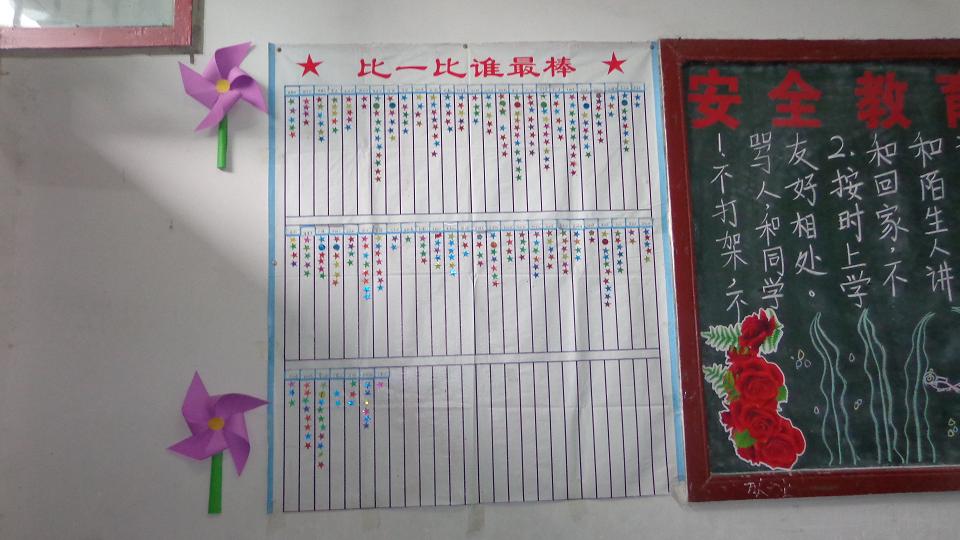 比一比谁最棒
安全教育
1.不打架,不
骂人,和同学
友好相处。
2.按时上学
和回家,不
和陌生人讲